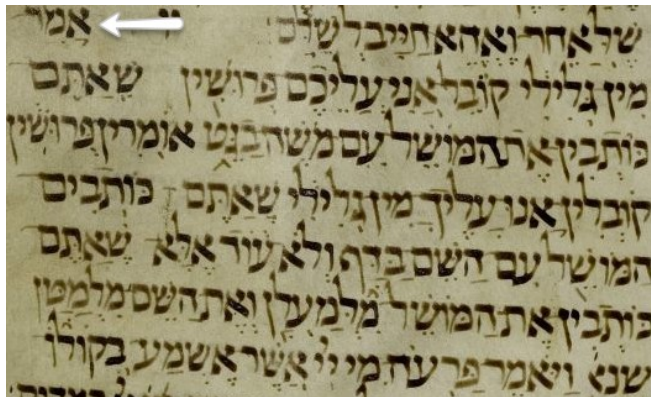 שלאחר ואהא חייב לשלם אמר
מין גלילי קובל אני עליכם פרושין שאתם
כותבין את המושל עם משה בגט אומרין פרושין
קובלין אנו עליך מין גלילי שאתם כותבים
המושל עם השם בדף ולא עוד אלא שאתם
כותבין את המושל מלמעלן ואת השם מלמטן
שנא' ויאמר פרעה מי ייי אשר אשמע בקולו